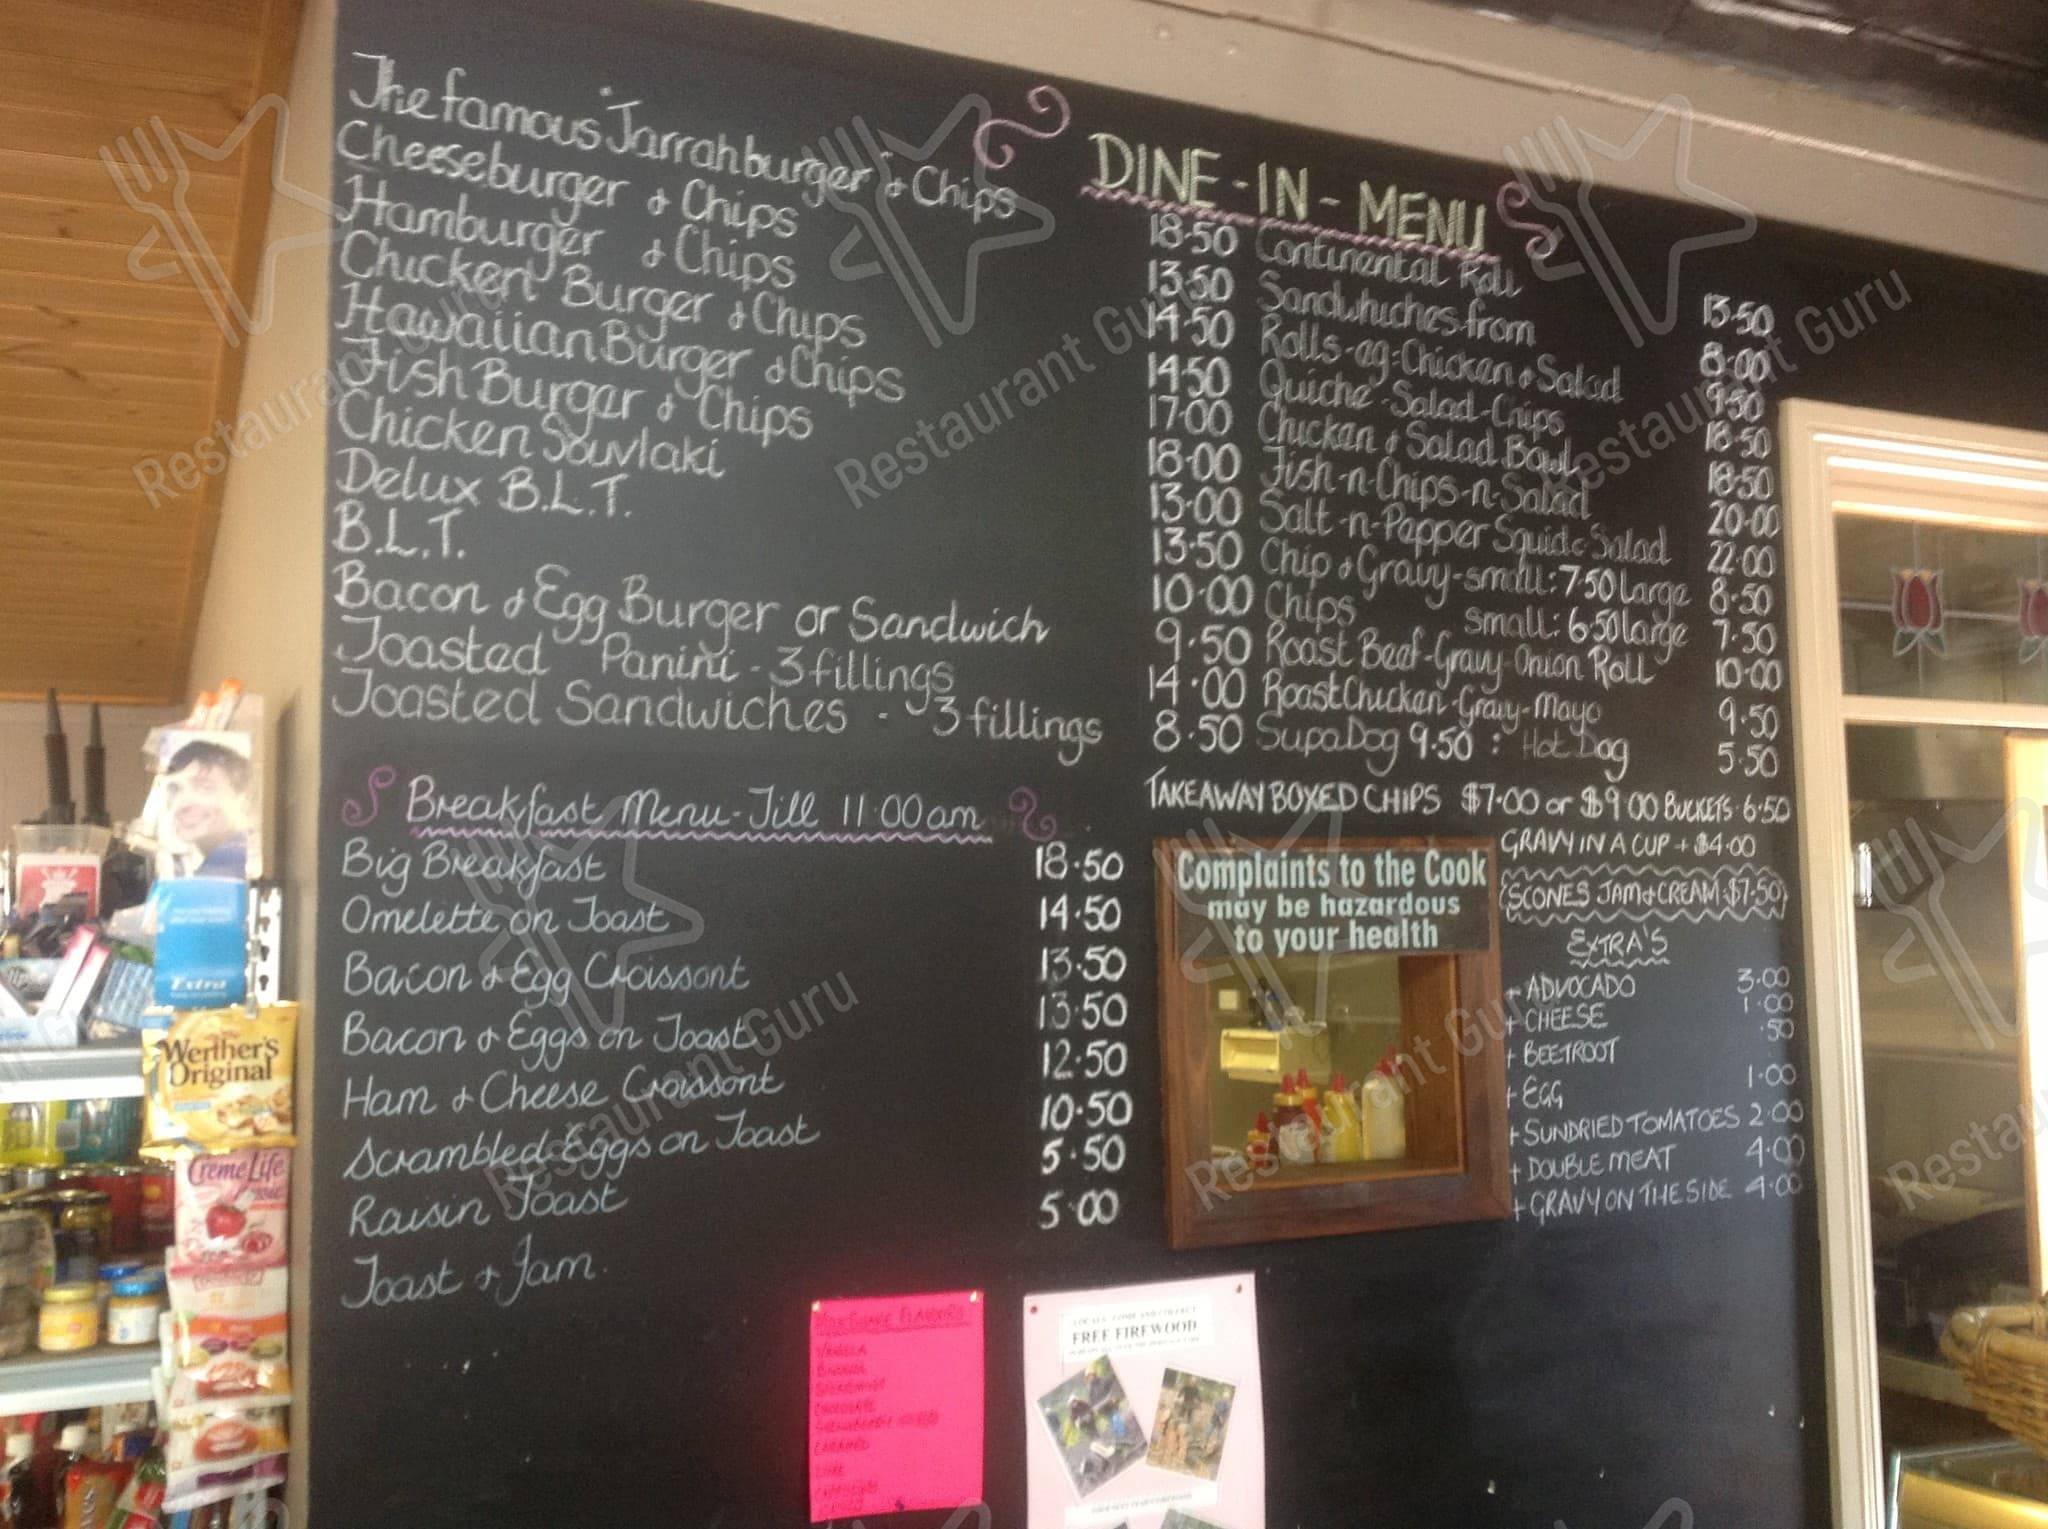 DINE-IN-MENU
The famous "Jarrahburger" & Chips 18.50
Cheeseburger & Chips 13.50
Hamburger & Chips 14.50
Chicken Burger & Chips 14.50
Hawaiian Burger & Chips 17.00
Fish Burger & Chips 18.00
Chicken Souvlaki 13.00
Delux B.L.T. 13.50
B.L.T. 10.00
Bacon & Egg Burger or Sandwich 9.50
Toasted Panini - 3 fillings 14.00
Toasted Sandwiches - 3 fillings 8.50
Continental Roll 13.50
Sandwhiches-from 8.00
Rolls-eg:Chicken & Salad 9.50
Quiche-Salad-Chips 18.50
Chicken & Salad Bowl 18.50
Fish-n-Chips-n-Salad 20.00
Salt-n-Pepper Squid & Salad 22.00
Chip & Gravy-small: 7.50 large 8.50
Chips small: 6.50 large 7.50
Roast Beef-Gravy-Onion Roll 10.00
Roast Chicken-Gravy-Mayo 9.50
SupaDog 9.50 : Hot Dog 5.50
TAKEAWAY BOXED CHIPS $7.00 or $9.00 BUCKETS 6.50
GRAVY IN A CUP + $4.00
SCONES JAM & CREAM $7.50
EXTRA'S
+ ADVOCADO 3.00
+ CHEESE 1.00
+ BEETROOT .50
+ EGG 1.00
+ SUNDRIED TOMATOES 2.00
+ DOUBLE MEAT 4.00
+ GRAVY ON THE SIDE 4.00
Breakfast Menu-Till 11.00am
Big Breakfast 18.50
Omelette on Toast 14.50
Bacon & Egg Croissont 13.50
Bacon & Eggs on Toast 13.50
Ham & Cheese Croissont 12.50
Scrambled Eggs on Toast 10.50
Raisin Toast 5.50
Toast & Jam. 5.00
Complaints to the Cook
may be hazardous
to your health
VANILLA
BANANA
CHOCOLATE
CARAMEL
LIME
FREE FIREWOOD
Extra
Werther's
Original
Creme Life
Restaurant Guru
Restaurant Guru
Restaurant Guru
Restaurant Guru
Restaurant Guru